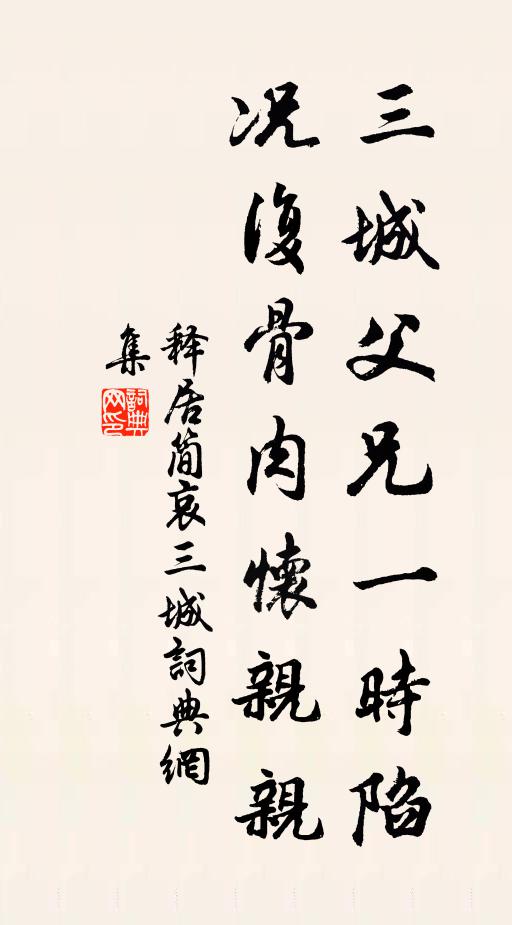 三城父兄一時陷
况復骨肉懷親親
释居簡哀三城詞典網
集
詞典網印